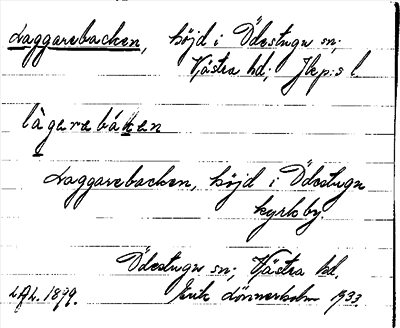 Laggarebacken, höjd i Ödestugu sn;
Västra hd; Jkp:s l
làgarebáken
Laggarebacken, höjd i Ödestugu
kyrkby.
Ödestugu sn; Västra hd.
LAL. 1899. Erik Lönnerholm 1933.